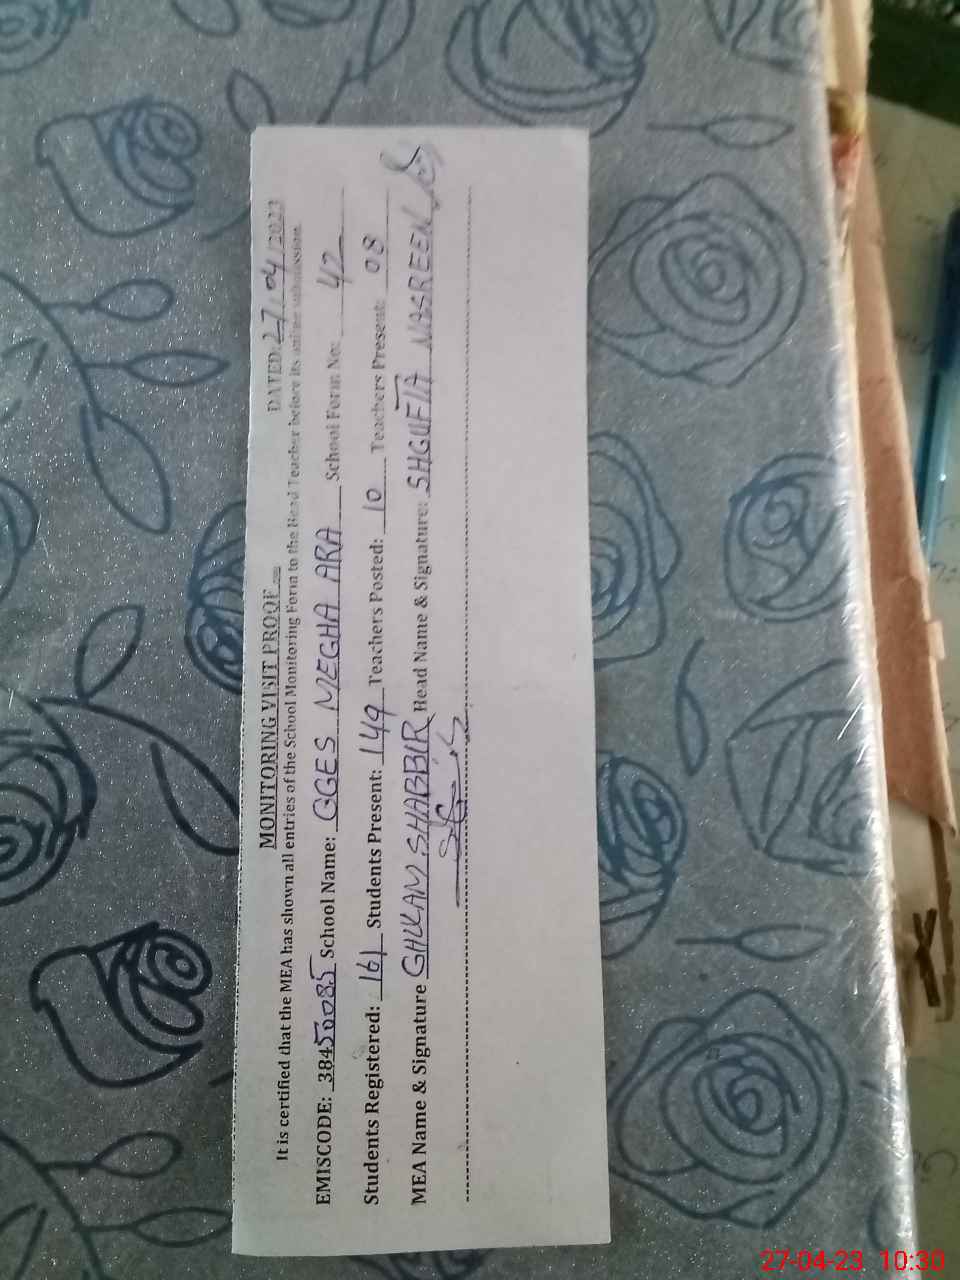 MONITORING VISIT PROOF DATED: 27/04/2023
It is certified that the MEA has shown all entries of the School Monitoring Form to the Head Teacher before its online submission.
EMISCODE: 38450085 School Name: GGES MEGHA ARA School Form No: 42
Students Registered: 161 Students Present: 149 Teachers Posted: 10 Teachers Present: 08
MEA Name & Signature GHULAM SHABBIR Head Name & Signature: SHGUFTA NASREEN
27-04-23 10:30